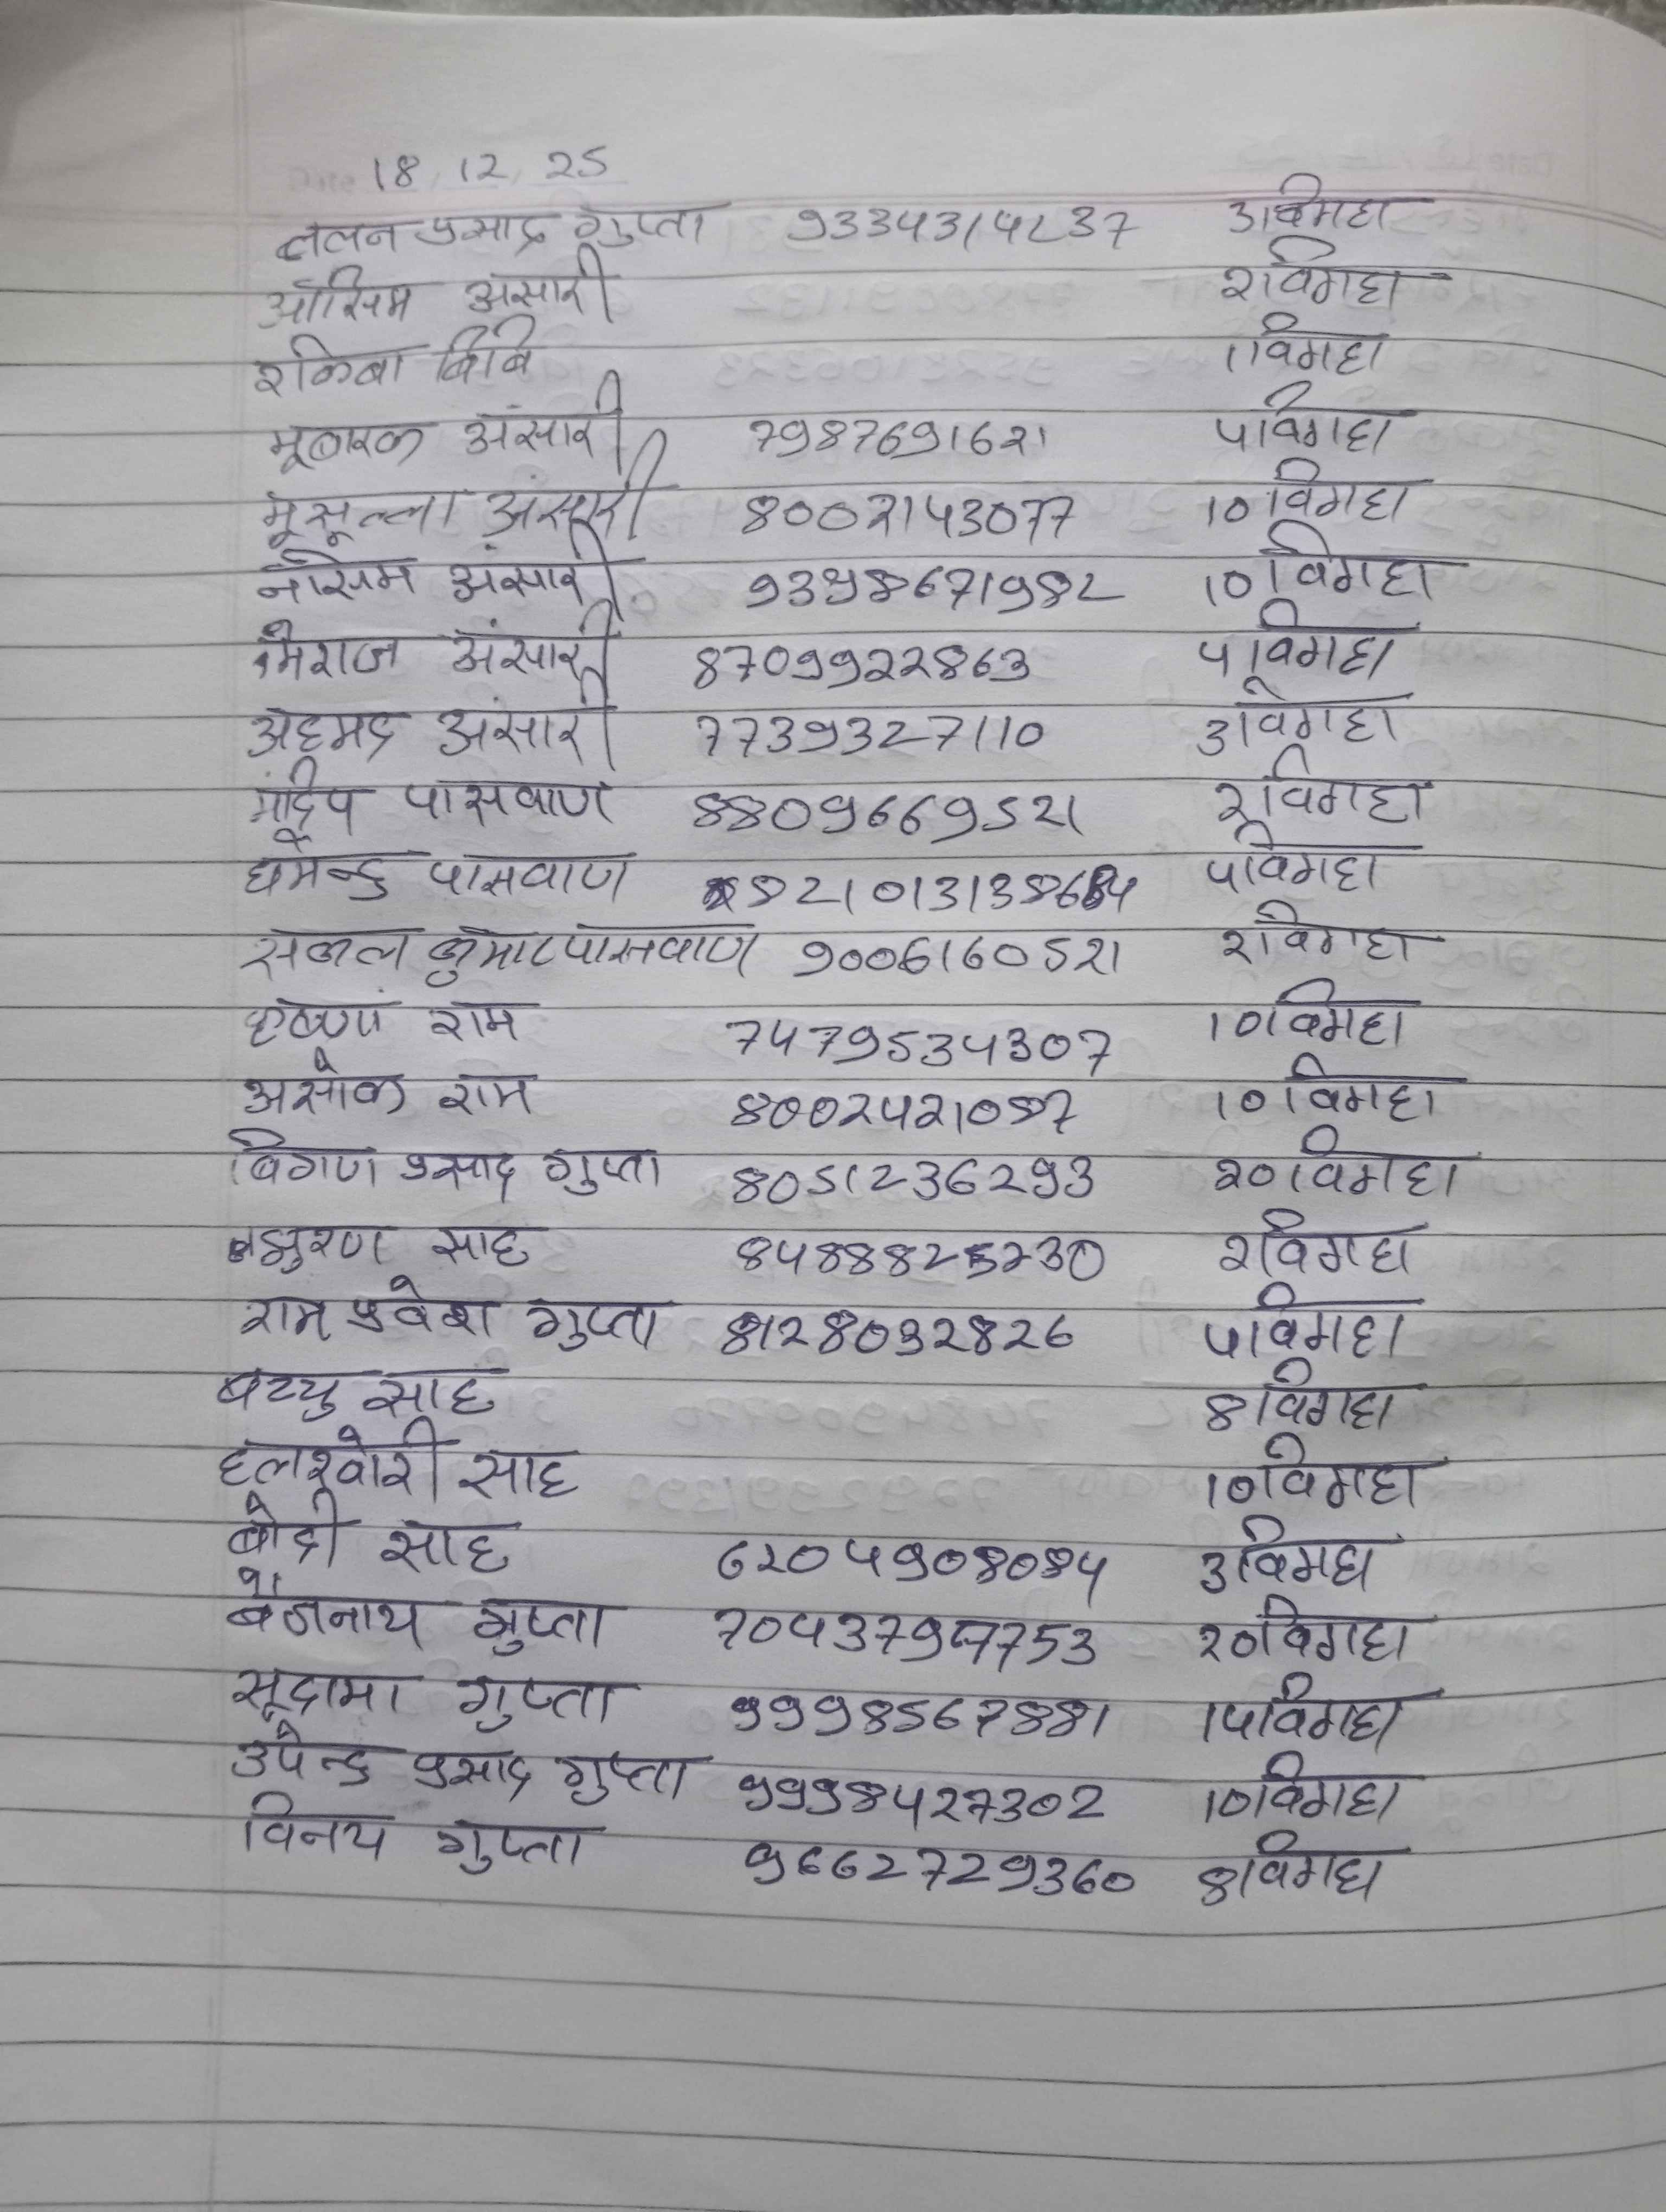 18.12.25
ललन प्रसाद गुप्ता 9334314237 3 विगहा
आसिम अंसारी 2 विगहा
रकिबा बिबि 1 विगहा
मूबारक अंसारी 7987691621 5 विगहा
मूसूल्ला अंसारी 8002143077 10 विगहा
नसिम अंसारी 10 विगहा
मेराज अंसारी 8709922863 5 विगहा
अहमद अंसारी 7739327110 3 विगहा
मंदिप पासवाण 8809669521 2 विगहा
धर्मेन्द्र पासवाण 5 विगहा
सकल कुमार पासवाण 9006160521 2 विगहा
कृष्णा राम 7479534307 10 विगहा
असोक राम 8002421087 10 विगहा
बिगण प्रसाद गुप्ता 8051236293 20 विगहा
साह 2 विगहा
राम प्रवेश गुप्ता 8128032826 5 विगहा
साह 8 विगहा
हलखोरी साह 10 विगहा
बोदी साह 6204908084 3 विगहा
बैजनाथ गुप्ता 20 विगहा
सूदामा गुप्ता 9998567881 15 विगहा
उपेन्द्र प्रसाद गुप्ता 9998427302 10 विगहा
विनय गुप्ता 9662729360 8 विगहा